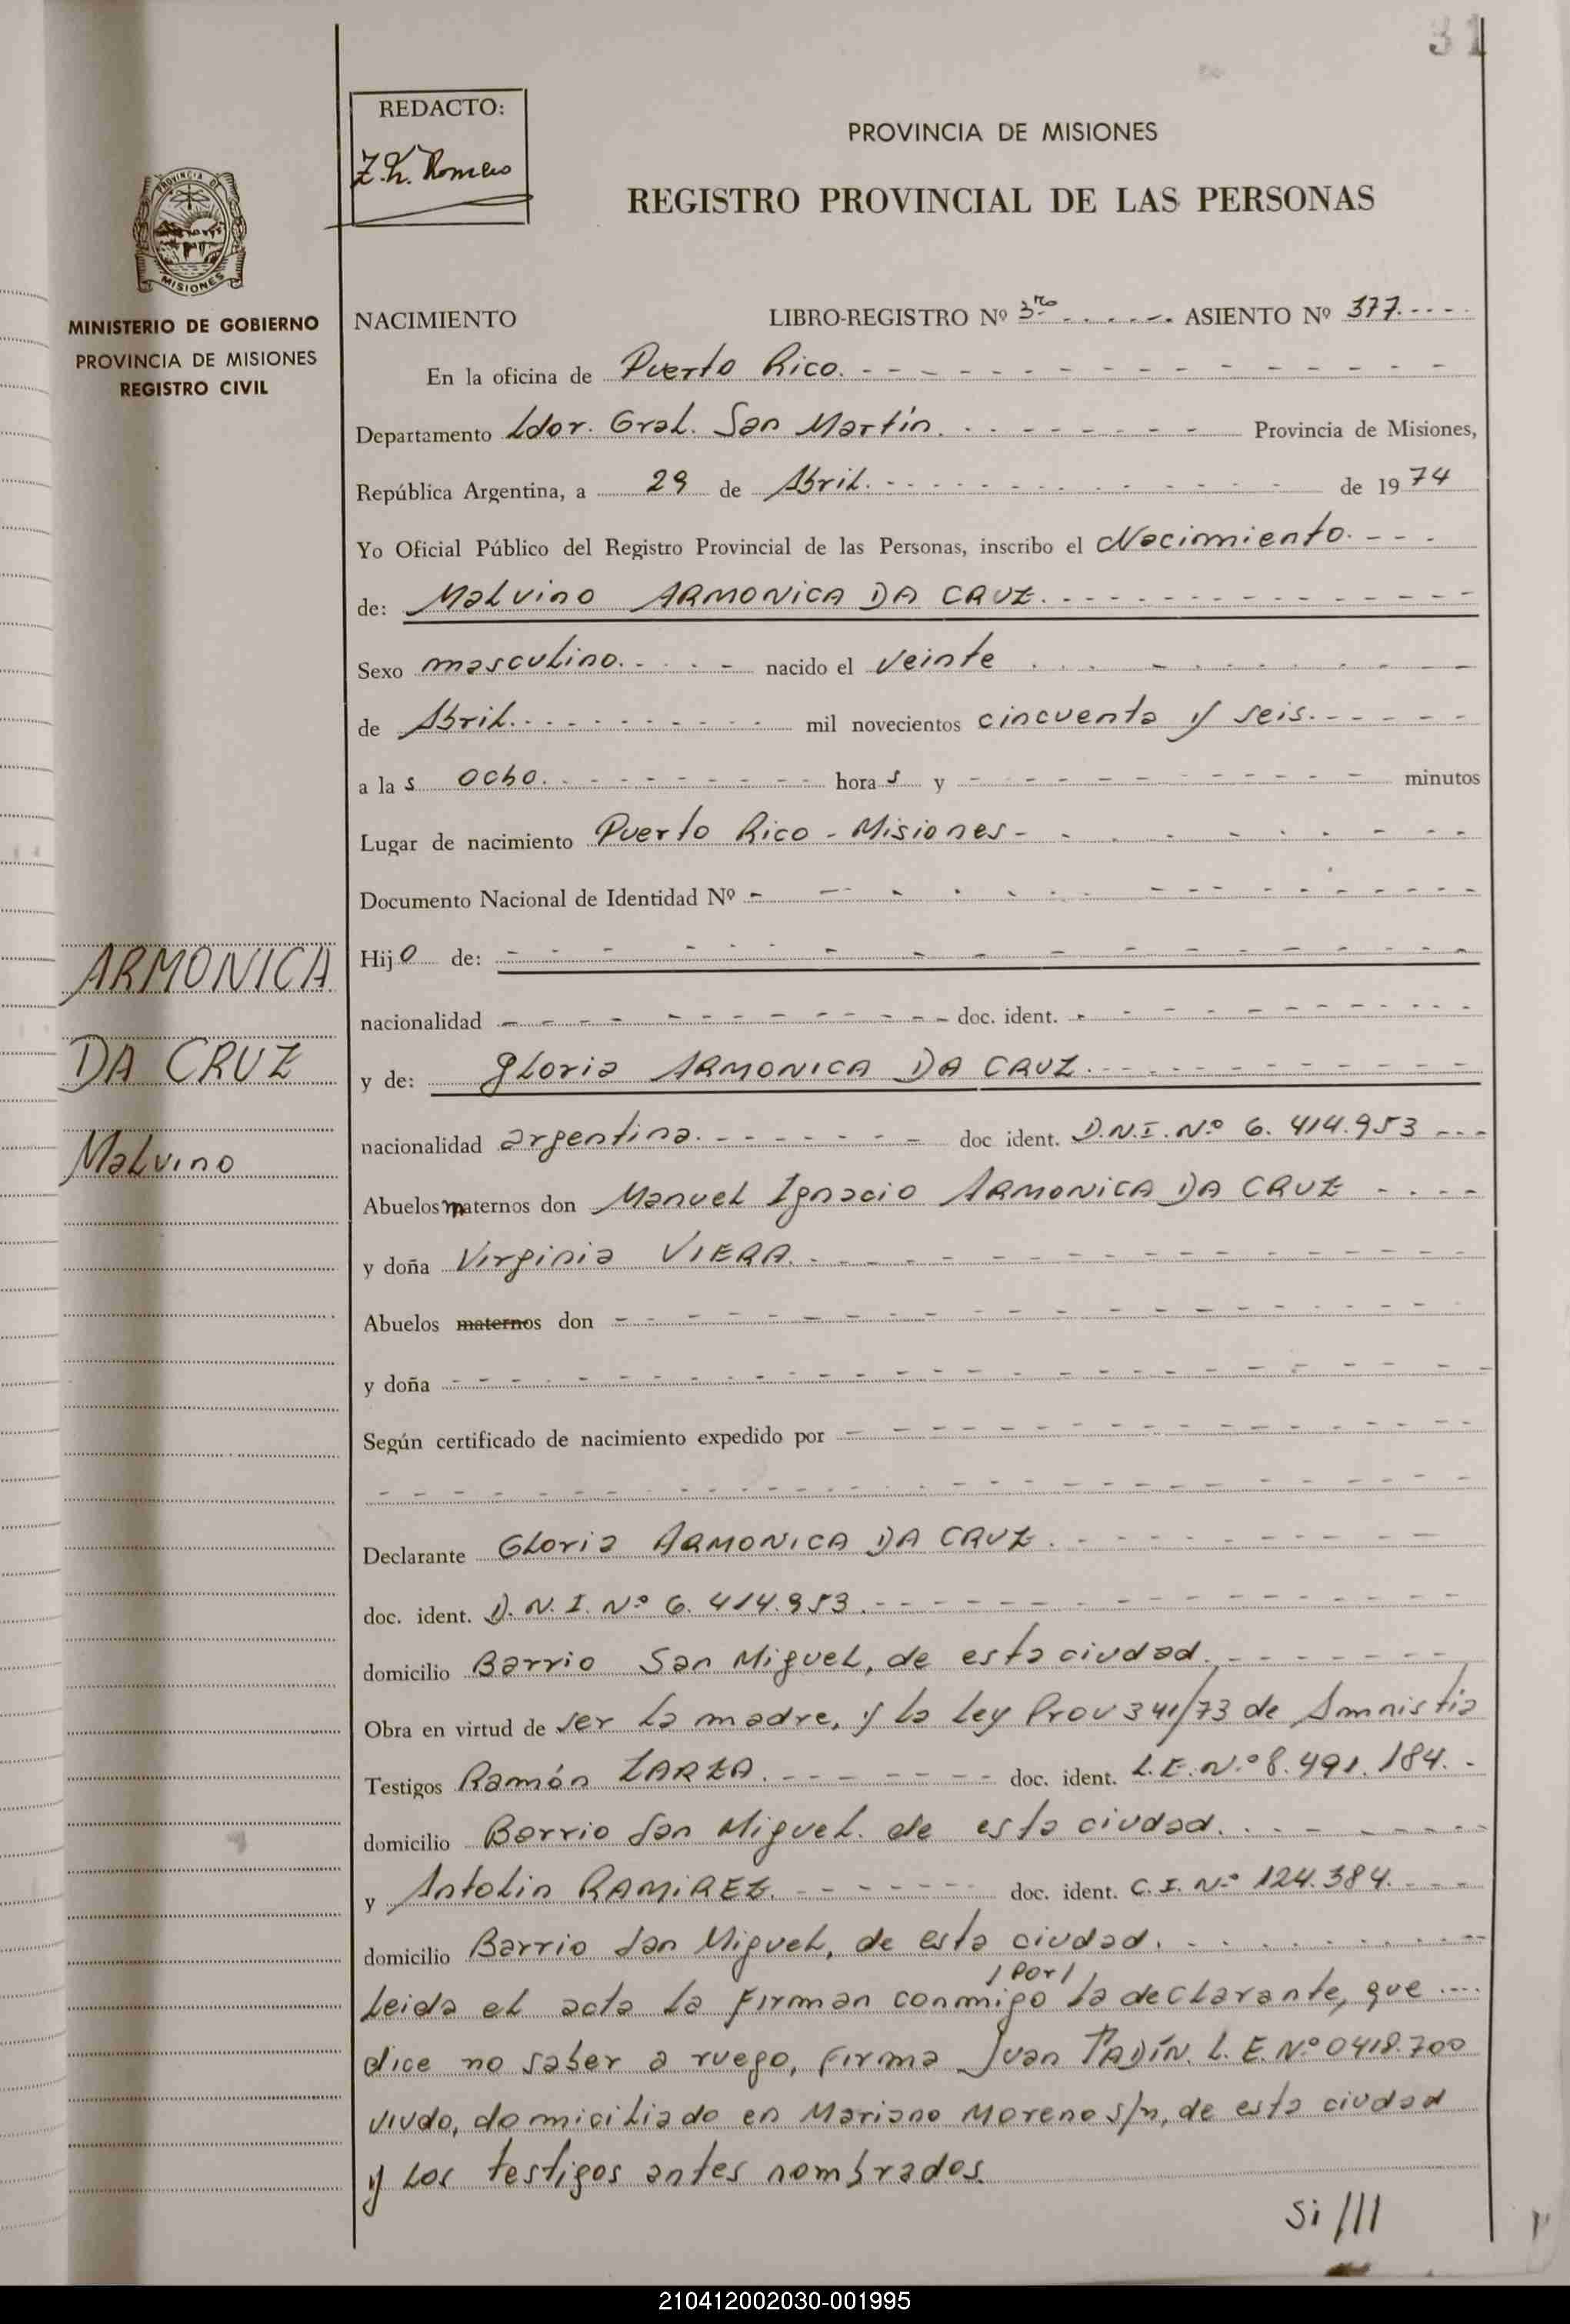 31
REDACTO:
Z.K. Romero
PROVINCIA DE MISIONES
REGISTRO PROVINCIAL DE LAS PERSONAS
PROVINCIA DE
MISIONES
MINISTERIO DE GOBIERNO
PROVINCIA DE MISIONES
REGISTRO CIVIL
NACIMIENTO LIBRO-REGISTRO Nº 3ro ASIENTO Nº 377.
En la oficina de Puerto Rico.
Departamento Ldor. Gral. San Martín. Provincia de Misiones,
República Argentina, a 29 de Abril. de 1974
Yo Oficial Público del Registro Provincial de las Personas, inscribo el Nacimiento.
de: Malvino ARMONICA DA CRUZ.
Sexo masculino. nacido el veinte
de Abril. mil novecientos cincuenta y seis.
a las ocho. horas y minutos
Lugar de nacimiento Puerto Rico - Misiones -
Documento Nacional de Identidad Nº -
ARMONICA
DA CRUZ
Malvino
Hijo de:
nacionalidad doc. ident.
y de: Gloria ARMONICA DA CRUZ.
nacionalidad argentina. doc ident. D.N.I. Nº 6.414.953
Abuelos maternos don Manuel Ignacio ARMONICA DA CRUZ
y doña Virginia VIERA.
Abuelos maternos don
y doña
Según certificado de nacimiento expedido por
Declarante Gloria ARMONICA DA CRUZ.
doc. ident. D.N.I. Nº 6.414.953.
domicilio Barrio San Miguel, de esta ciudad.
Obra en virtud de ser la madre, y la Ley Prov 341/73 de Amnistia
Testigos Ramón ZARZA. doc. ident. L.E. Nº 8.491.184.
domicilio Barrio San Miguel. de esta ciudad.
y Antolin RAMIREZ. doc. ident. C.I. Nº 124.384.
domicilio Barrio San Miguel, de esta ciudad.
/Por/
Leida el acta la firman conmigo la declarante, que
dice no saber a ruego, firma Juan TADÍN. L.E. Nº 0418.700
viudo, domiciliado en Mariano Moreno s/n, de esta ciudad
y los testigos antes nombrados.
Si///
210412002030-001995